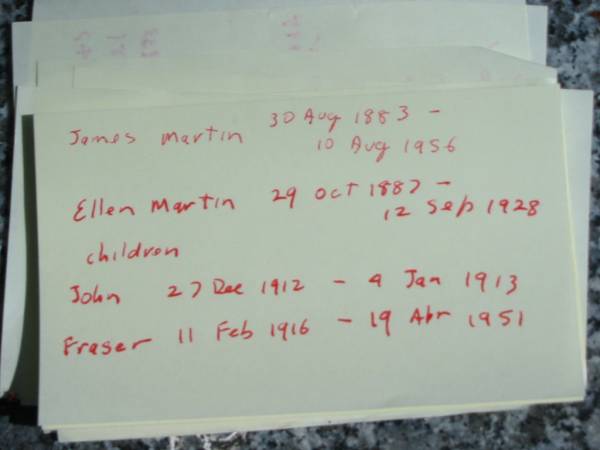 James Martin 30 Aug 1883 -
10 Aug 1956
Ellen Martin 29 Oct 1887 -
12 Sep 1928
children
John 27 Dec 1912 - 9 Jan 1913
Fraser 11 Feb 1916 - 19 Apr 1951